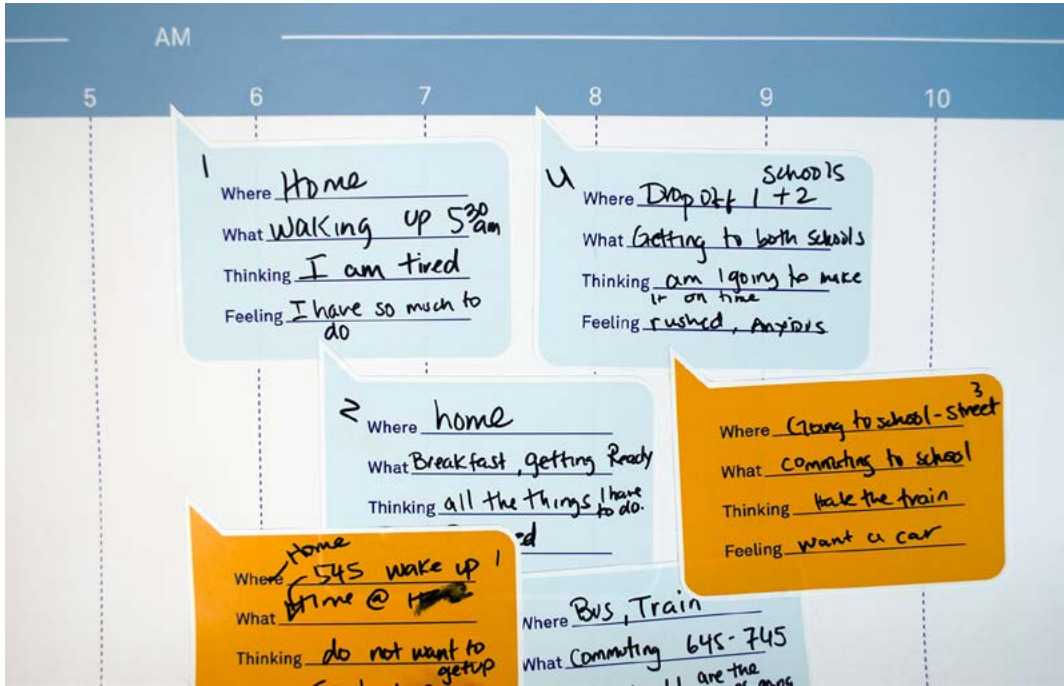 AM
5 6 7 8 9 10
1
Where Home
What Waking up 5 30 am
Thinking I am tired
Feeling I have so much to
do
4
schools
Where Drop off 1 + 2
What Getting to both schools
Thinking am I going to make
it on time
Feeling rushed, Anxious
2
Where home
What Breakfast, getting Ready
Thinking all the things I have
to do.
3
Where Going to school - Street
What commuting to school
Thinking Hate the train
Feeling want a car
1
Home
Where 545 wake up
What time @
Thinking do not want to
getup
Where Bus, Train
What Commuting 645-745
are the